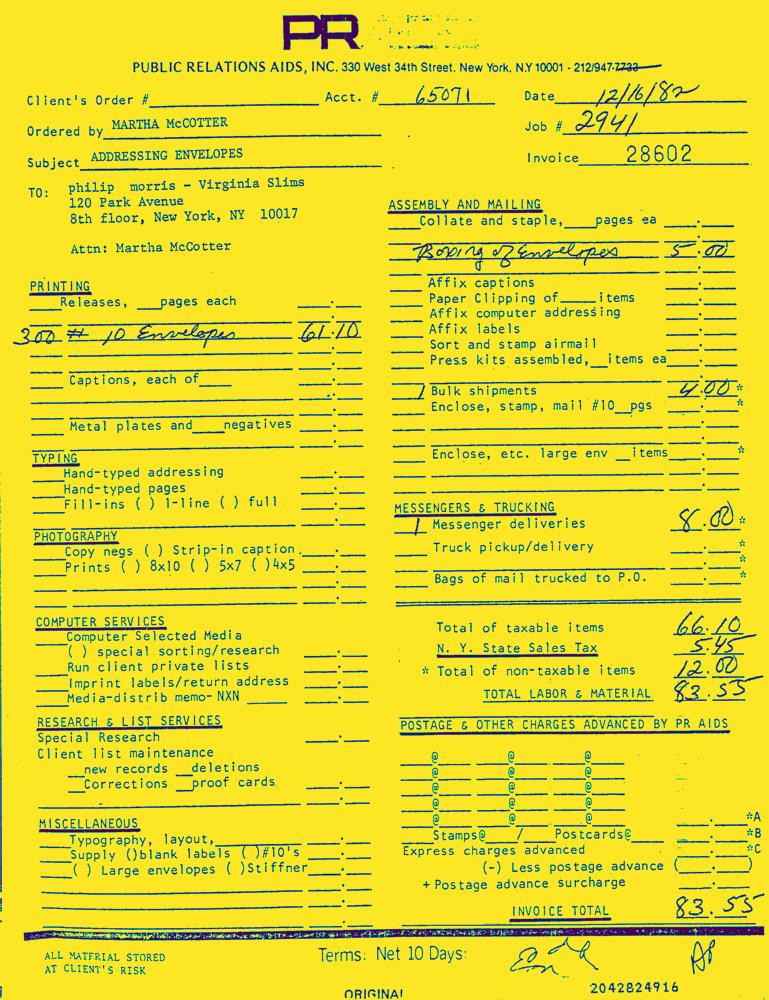 PR
PUBLIC RELATIONS AIDS, INC. 330 West 34th Street. New York, N.Y 10001 - 212/947-7733
Client's Order #
Acct. # 65071
Date 12/16/82
Ordered by MARTHA McCOTTER
Job # 2941
Subject ADDRESSING ENVELOPES
Invoice 28602
TO: philip morris - Virginia Slims
120 Park Avenue
8th floor, New York, NY 10017
Attn: Martha McCotter
PRINTING
Releases, ___pages each
300 # 10 Envelopes 61.10
Captions, each of
Metal plates and ___negatives
TYPING
Hand-typed addressing
Hand-typed pages
Fill-ins ( ) 1-line ( ) full
PHOTOGRAPHY
Copy negs ( ) Strip-in caption
Prints ( ) 8x10 ( ) 5x7 ( )4x5
COMPUTER SERVICES
Computer Selected Media
( ) special sorting/research
Run client private lists
Imprint labels/return address
Media-distrib memo- NXN
RESEARCH & LIST SERVICES
Special Research
Client list maintenance
__new records __deletions
__Corrections __proof cards
MISCELLANEOUS
Typography, layout,
Supply ()blank labels ( )#10's
( ) Large envelopes ( )Stiffner
ASSEMBLY AND MAILING
Collate and staple, ___pages ea
Boxing of Envelopes 5.00
Affix captions
Paper Clipping of ____items
Affix computer addressing
Affix labels
Sort and stamp airmail
Press kits assembled, __items ea
1 Bulk shipments 4.00 *
Enclose, stamp, mail #10 __pgs *
Enclose, etc. large env __items *
MESSENGERS & TRUCKING
1 Messenger deliveries 8.00 *
Truck pickup/delivery *
*
Bags of mail trucked to P.O. *
Total of taxable items 66.10
N. Y. State Sales Tax 5.45
* Total of non-taxable items 12.00
TOTAL LABOR & MATERIAL 83.55
POSTAGE & OTHER CHARGES ADVANCED BY PR AIDS
@ @ @
@ @ @
@ @ @
@ @ @
@ @ @ *A
Stamps@ / Postcards@ *B
Express charges advanced *C
(-) Less postage advance ( )
+ Postage advance surcharge
INVOICE TOTAL 83.55
ALL MATERIAL STORED
AT CLIENT'S RISK
Terms: Net 10 Days:
ORIGINAL
2042824916